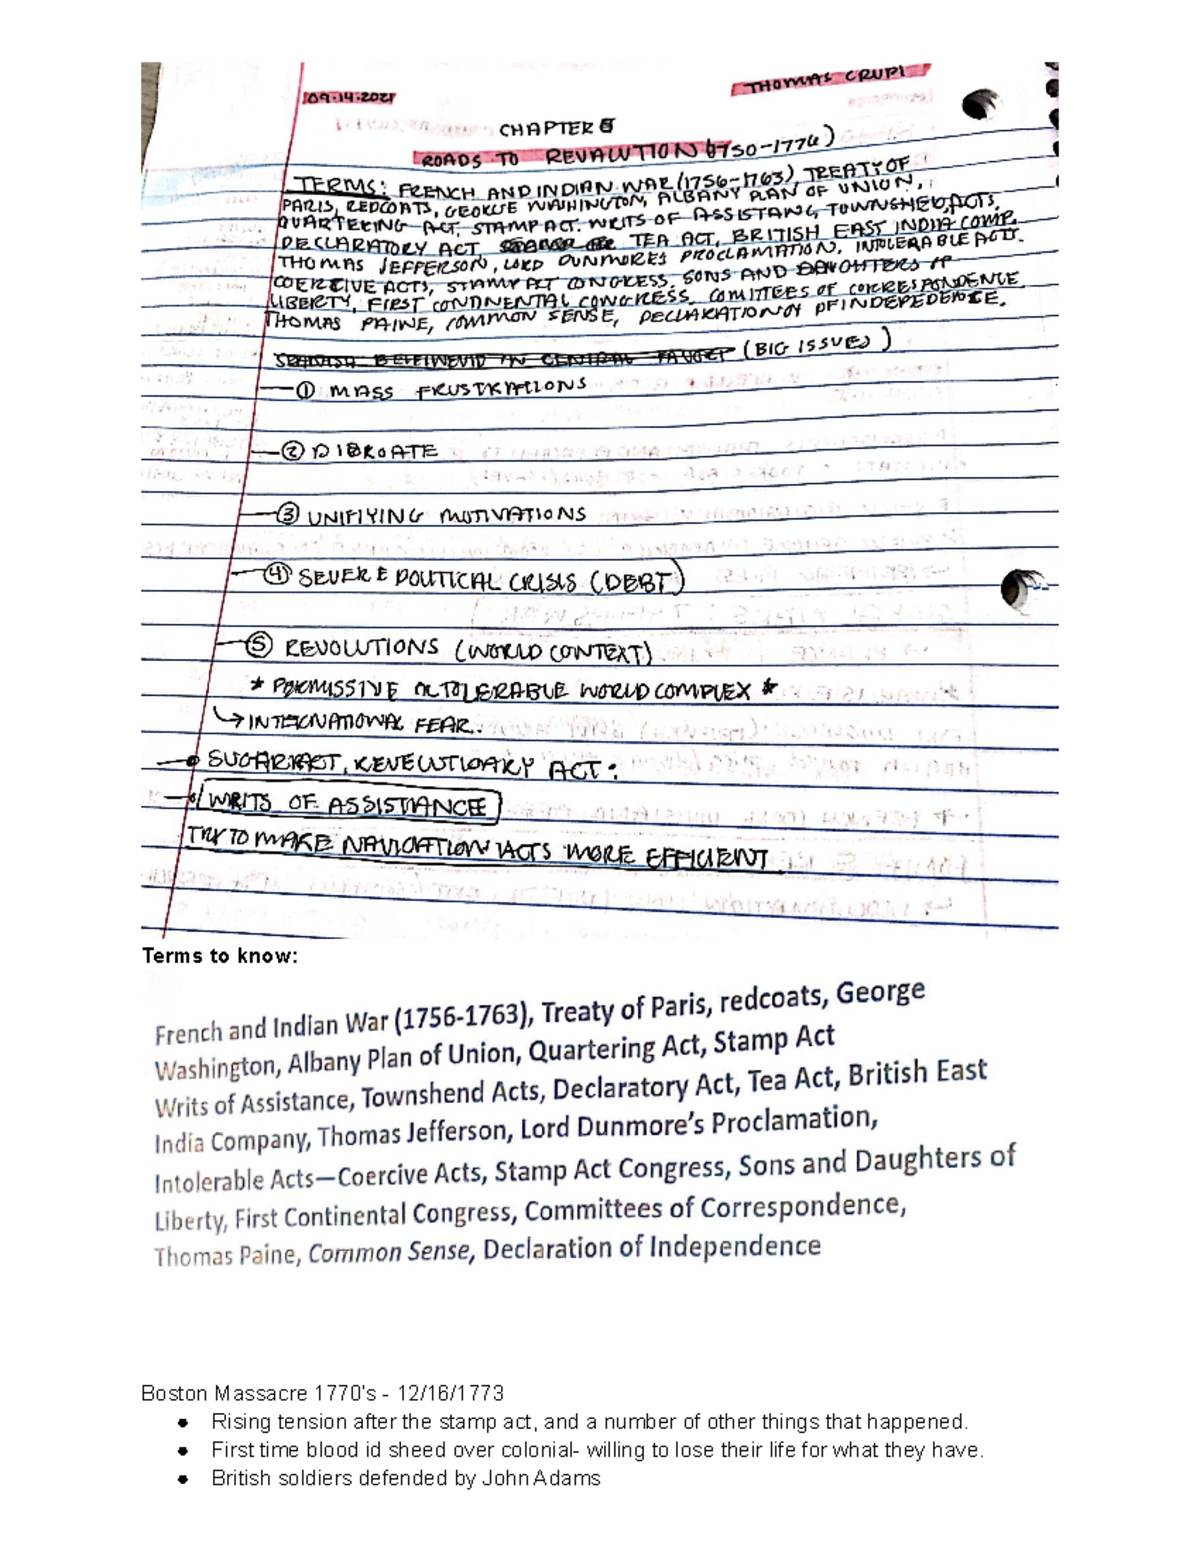 09.14.2021
THOMAS CRUPI
CHAPTER 5
ROADS TO REVALUTION (1750-1776)
TERMS: FRENCH AND INDIAN WAR (1756-1763), TREATY OF
PARIS, REDCOATS, GEORGE WAHINGTON, ALBANY PLAN OF UNION,
QUARTERING ACT, STAMP ACT. WRITS OF ASSISTANG, TOWNSHED, ACTS,
DECLARATORY ACT, TEA ACT, BRITISH EAST INDIA COMP.
THOMAS JEFFERSON, LORD DUNMORES PROCLAMATION, INTOLERABLE ACTS.
COERCIVE ACTS, STAMP ACT CONGRESS, SONS AND DAUGHTERS OF
LIBERTY, FIRST CONTINENTAL CONGRESS, COMITTEES OF CORRESPONDENCE
THOMAS PAINE, COMMON SENSE, DECLARATION OF INDEPEDENCE.
(BIG ISSUES)
① MASS FRUSTRATIONS
②
③ UNIFIYING MOTIVATIONS
④ SEVERE POLITICAL CRISIS (DEBT)
⑤ REVOLUTIONS (WORLD CONTEXT)
* PERMISSIVE OR TOLERABLE WORLD COMPLEX *
↳ INTERNATIONAL FEAR.
SUGAR ACT, ACT:
WRITS OF ASSISTANCE
TRY TO MAKE NAVIGATION ACTS MORE EFFICIENT.
Terms to know:
French and Indian War (1756-1763), Treaty of Paris, redcoats, George
Washington, Albany Plan of Union, Quartering Act, Stamp Act
Writs of Assistance, Townshend Acts, Declaratory Act, Tea Act, British East
India Company, Thomas Jefferson, Lord Dunmore's Proclamation,
Intolerable Acts—Coercive Acts, Stamp Act Congress, Sons and Daughters of
Liberty, First Continental Congress, Committees of Correspondence,
Thomas Paine, Common Sense, Declaration of Independence
Boston Massacre 1770's - 12/16/1773
● Rising tension after the stamp act, and a number of other things that happened.
● First time blood id sheed over colonial- willing to lose their life for what they have.
● British soldiers defended by John Adams